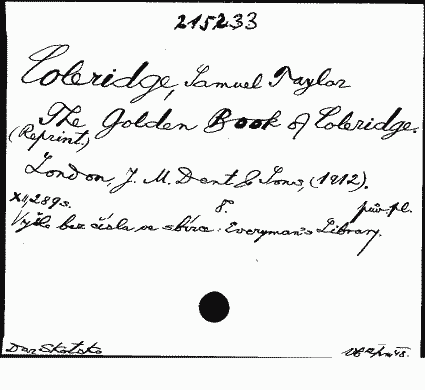 215233
Coleridge, Samuel Taylor
The Golden Book of Coleridge.
(Reprint.)
London, J. M. Dent & Sons, (1912).
XII, 289 s. 8°. pův. pl.
Vyšlo bez čísla ve sbírce: Everyman's Library.
Dar